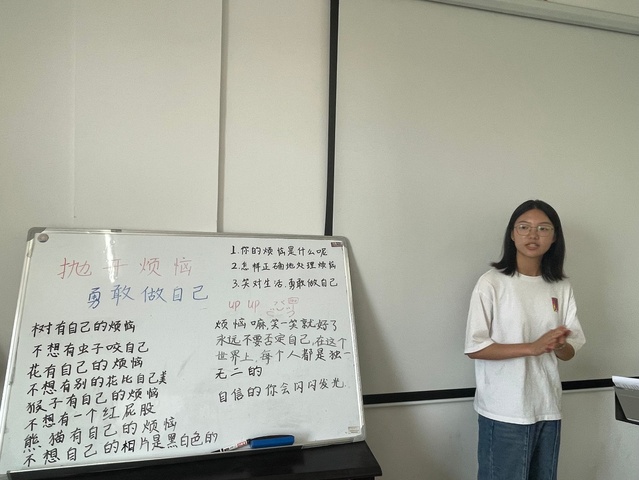 抛开烦恼
勇敢做自己
树有自己的烦恼
不想有虫子咬自己
花有自己的烦恼
不想有别的花比自己美
猴子有自己的烦恼
不想有一个红屁股
熊猫有自己的烦恼
不想自己的相片是黑白色的
1.你的烦恼是什么呢
2.怎样正确地处理烦恼
3.笑对生活,勇敢做自己
up up
烦恼嘛,笑一笑就好了
永远不要否定自己,在这个
世界上,每个人都是独一
无二的
自信的你会闪闪发光